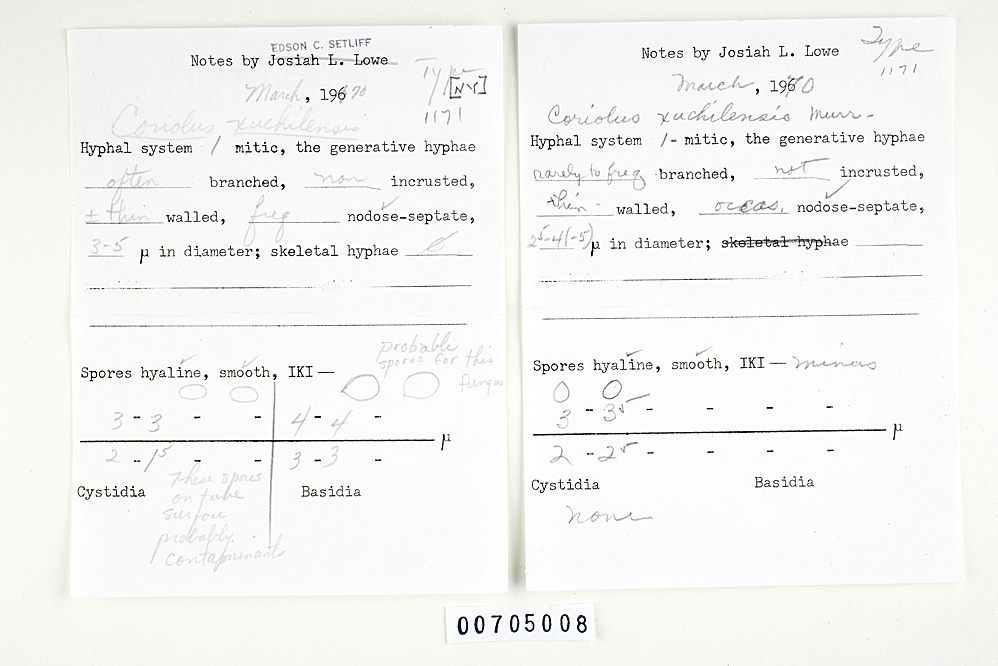 EDSON C. SETLIFF
Notes by Josiah L. Lowe
Type
[NY]
March, 19670
1171
Coriolus xuchilensis
Hyphal system / mitic, the generative hyphae
often branched, non incrusted,
± thin walled, freq nodose-septate,
3-5 µ in diameter; skeletal hyphae 0
probable
spores for this
fungus
Spores hyaline, smooth, IKI —
3 - 3 - - 4 - 4 -
µ
2 - 1⁵ - - 3 - 3 -
Cystidia Basidia
These spores
on tube
surface
probably
contaminants
Notes by Josiah L. Lowe
Type
1171
March, 19670
Coriolus xuchilensis Murr.
Hyphal system /- mitic, the generative hyphae
rarely to freq branched, not incrusted,
thin - walled, occas. nodose-septate,
2⁵-4(-5) µ in diameter; skeletal hyphae
Spores hyaline, smooth, IKI — minus
3 - 3⁵ - - - -
µ
2 - 2⁵ - - - -
Cystidia Basidia
none
00705008